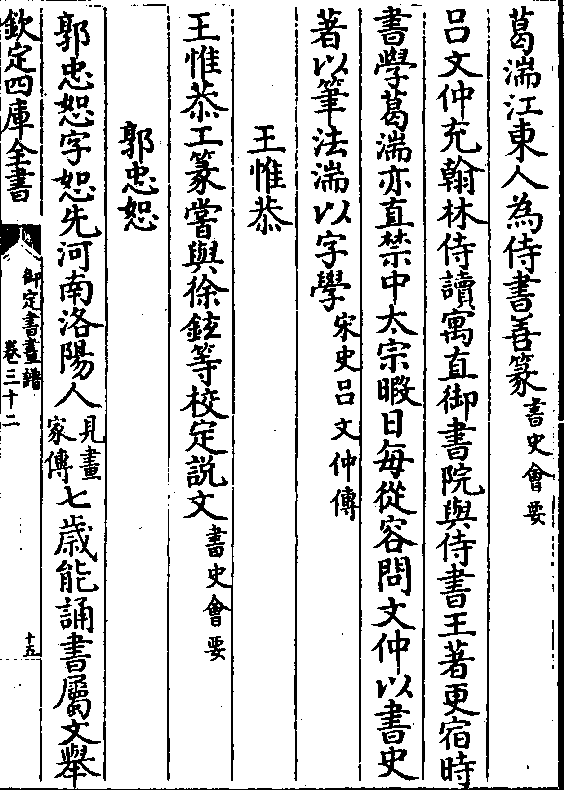 葛湍江東人為侍書善篆書史會要
呂文仲充翰林侍讀寓直御書院與侍書王著更宿時
書學葛湍亦直禁中太宗暇日每從容問文仲以書史
著以筆法湍以字學宋史呂文仲傳
王惟恭
王惟恭工篆嘗與徐鉉等校定說文書史會要
郭忠恕
郭忠恕字恕先河南洛陽人見畫家傳七歲能誦書屬文舉
欽定四庫全書
御定書畫譜
卷三十二
十五